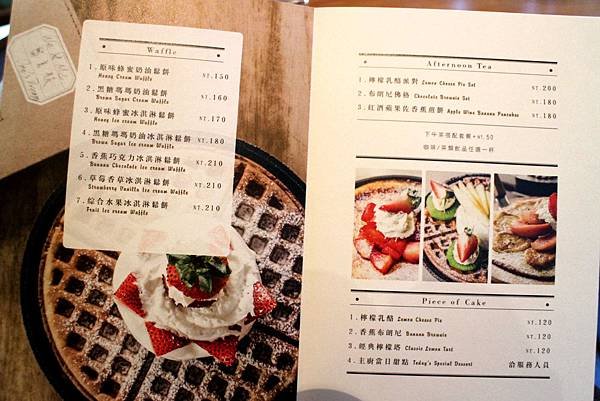 Waffle
1.原味蜂蜜奶油鬆餅 NT.150
Honey Cream Waffle
2.黑糖瑪瑪奶油鬆餅 NT.160
Brown Sugar Cream Waffle
3.原味蜂蜜冰淇淋鬆餅 NT.170
Honey Ice cream Waffle
4.黑糖瑪瑪奶油冰淇淋鬆餅 NT.180
Brown Sugar Ice cream Waffle
5.香蕉巧克力冰淇淋鬆餅 NT.210
Banana Chocolate Ice cream Waffle
6.草莓香草冰淇淋鬆餅 NT.210
Strawberry Vanilla Ice cream Waffle
7.綜合水果冰淇淋鬆餅 NT.210
Fruit Ice cream Waffle
Afternoon Tea
1.檸檬乳酪派對 Lemon Cheese Pie Set NT.200
2.布朗尼佛格 Chocolate Brownie Set NT.180
3.紅酒蘋果佐香蕉煎餅 Apple Wine Banana Pancakes NT.180
下午茶搭配套餐+NT.50
咖啡/茶類飲品任選一杯
Piece of Cake
1.檸檬乳酪 Lemon Cheese Pie NT.120
2.香蕉布朗尼 Banana Brownie NT.120
3.經典檸檬塔 Classic Lemon Tart NT.120
4.主廚當日甜點 Today's Special Dessert 洽服務人員